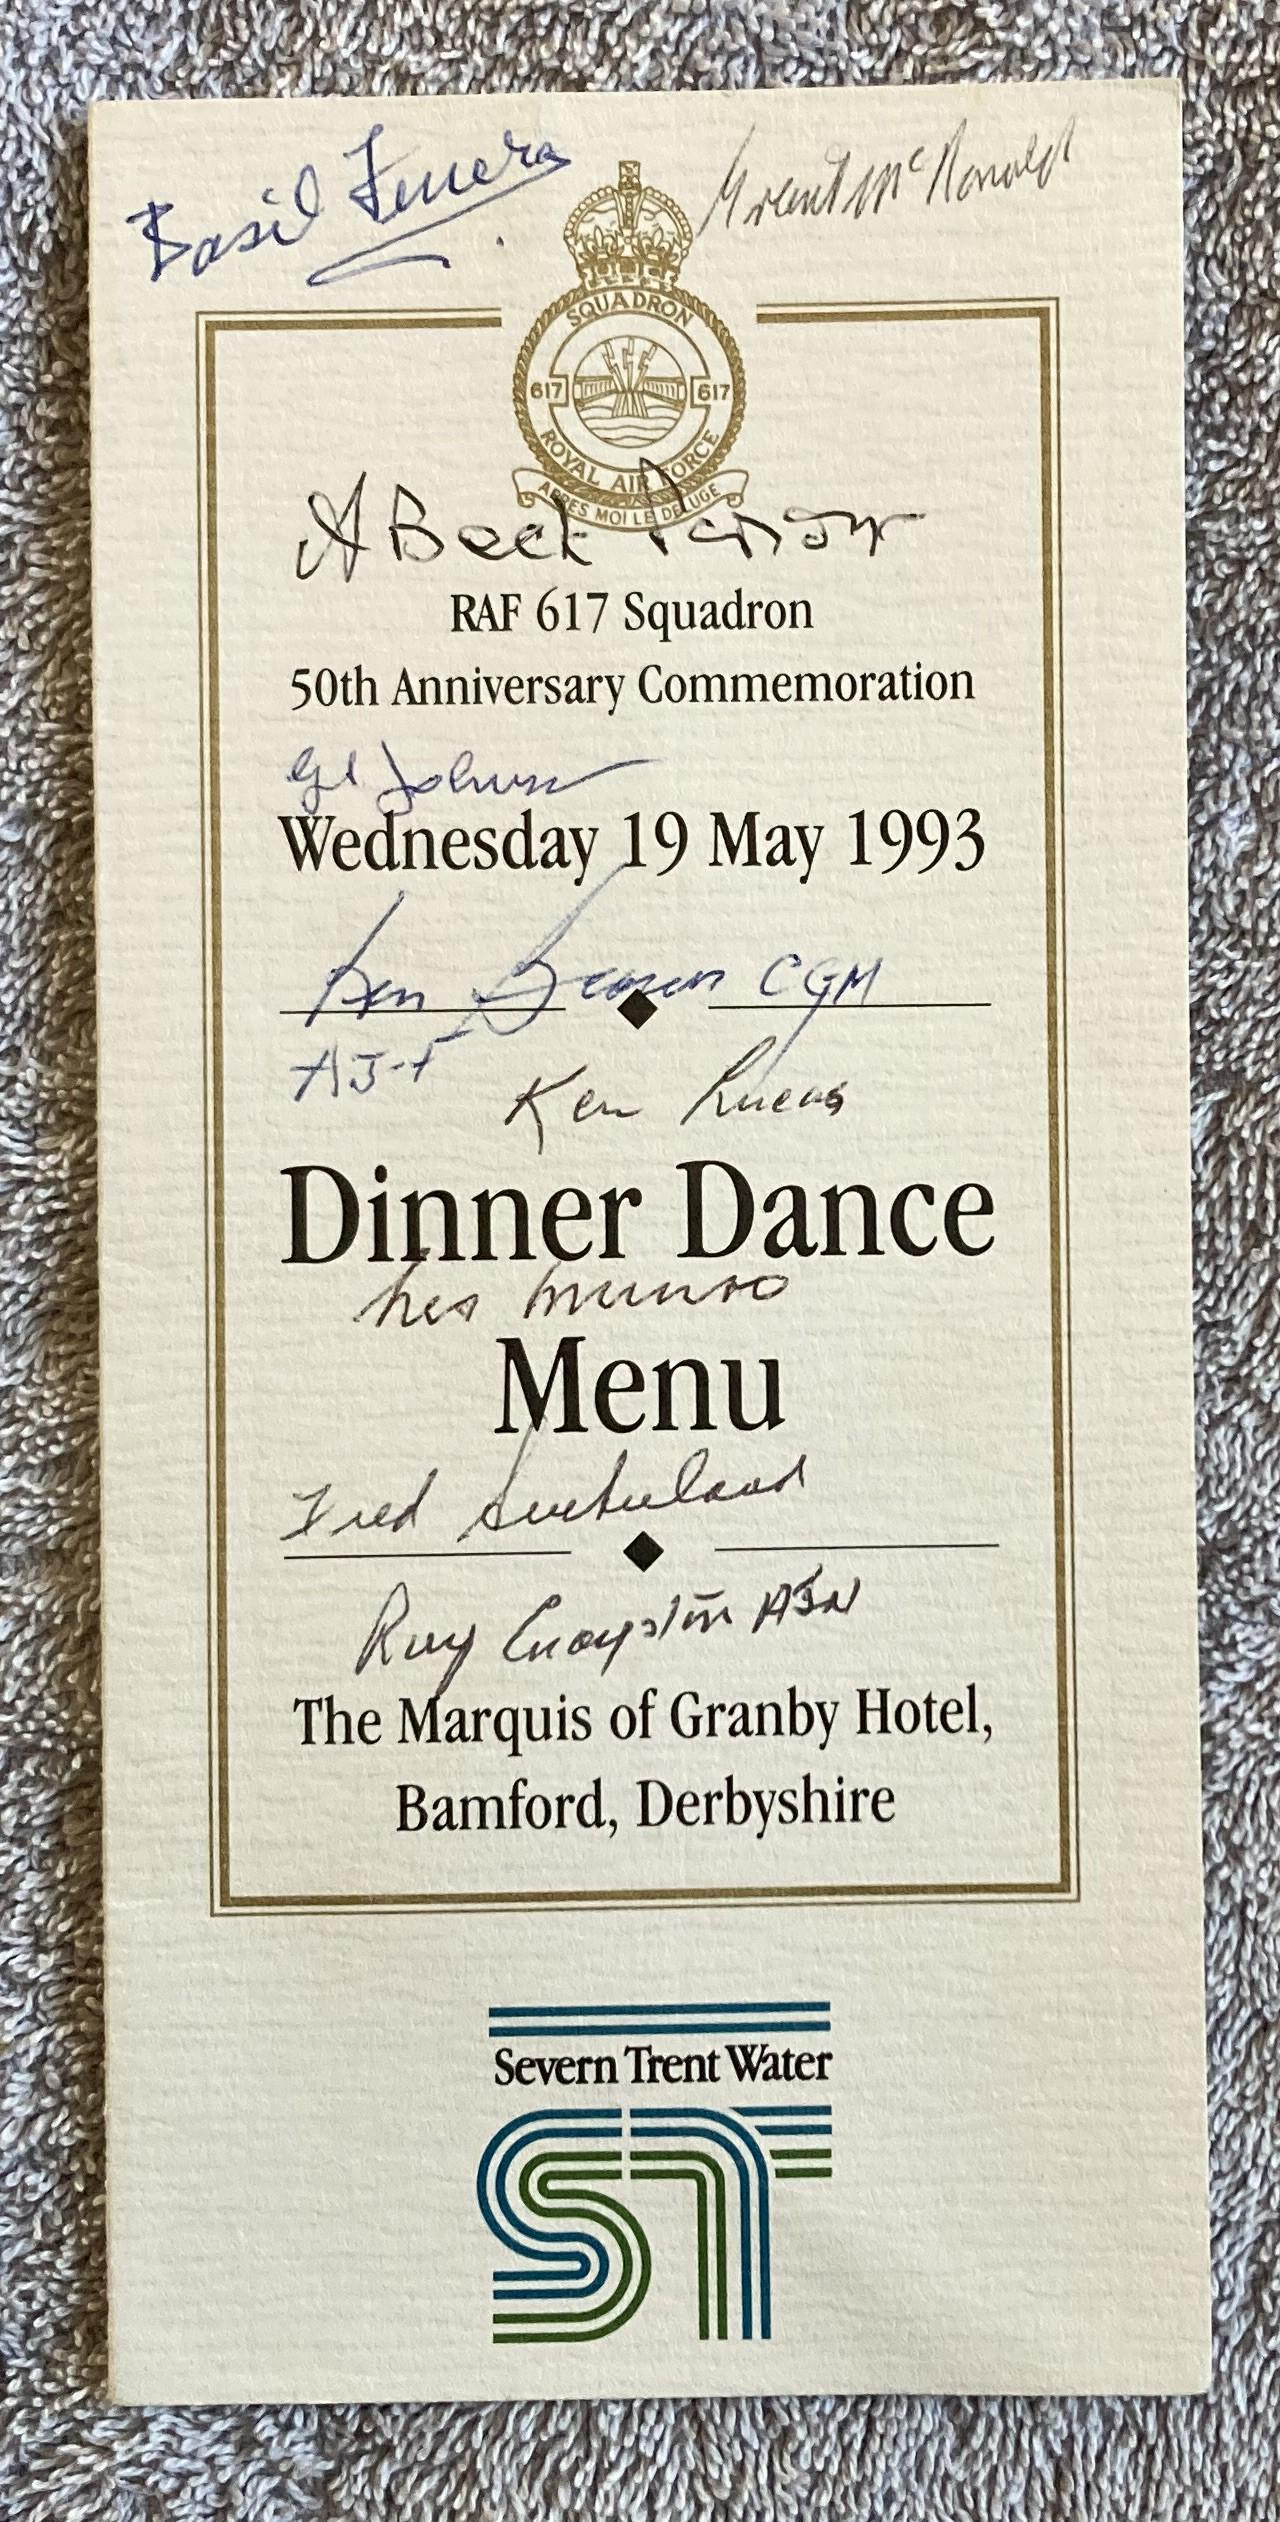 Basil Feneron
Grant McDonald
SQUADRON
617 617
ROYAL AIR FORCE
APRES MOI LE DELUGE
A Beck
RAF 617 Squadron
50th Anniversary Commemoration
Johnson
Wednesday 19 May 1993
Ken Brown CGM
AJ-F
Ken Lucas
Dinner Dance
Les Munro
Menu
Fred Sutherland
AJN
The Marquis of Granby Hotel,
Bamford, Derbyshire
Severn Trent Water
ST